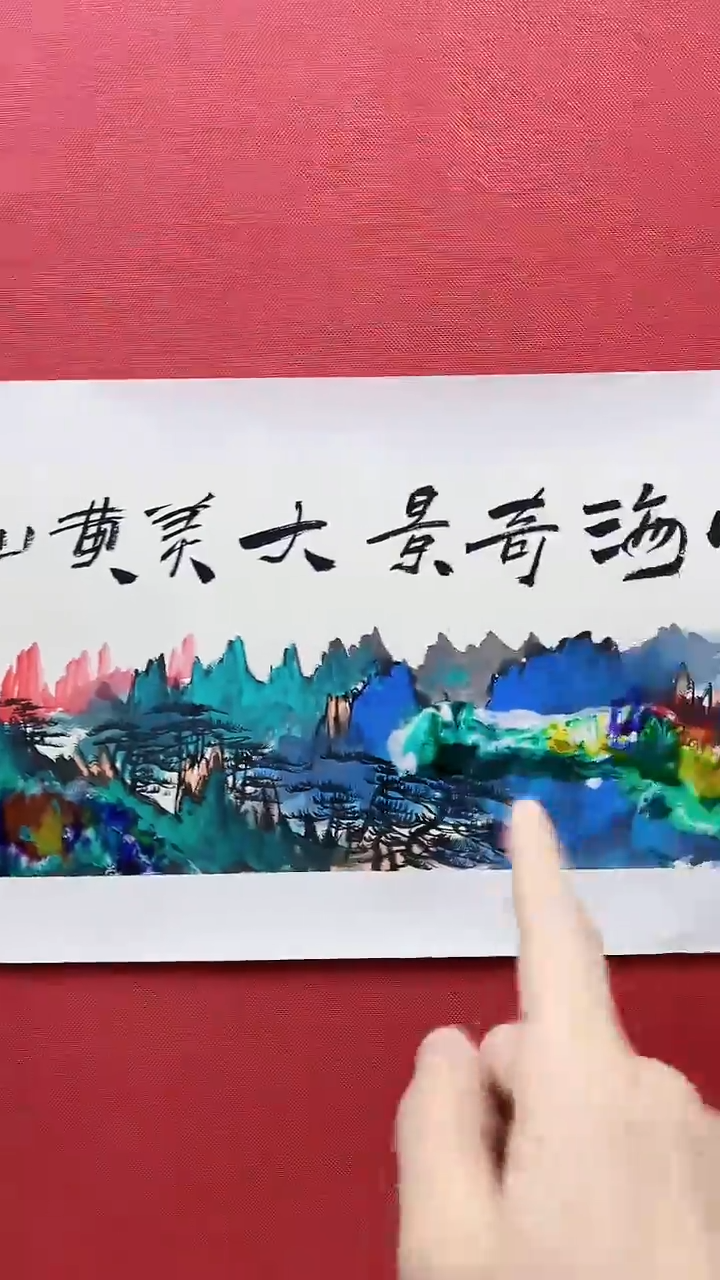 海奇景大美黄山